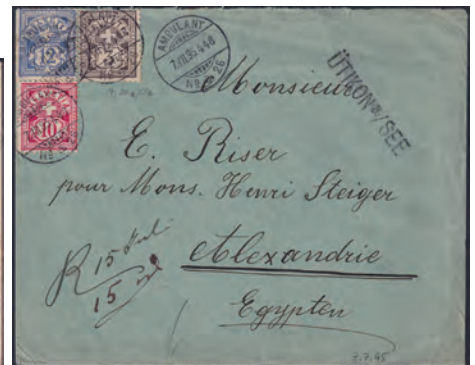 12 5
10
AMBULANT
7.VII.95.4-8
No 26
ÜTIKON a/SEE
Monsieur
E. Riser
pour Mons. Henri Steiger
Alexandrie
Egypten
R 15
15
7.7.95